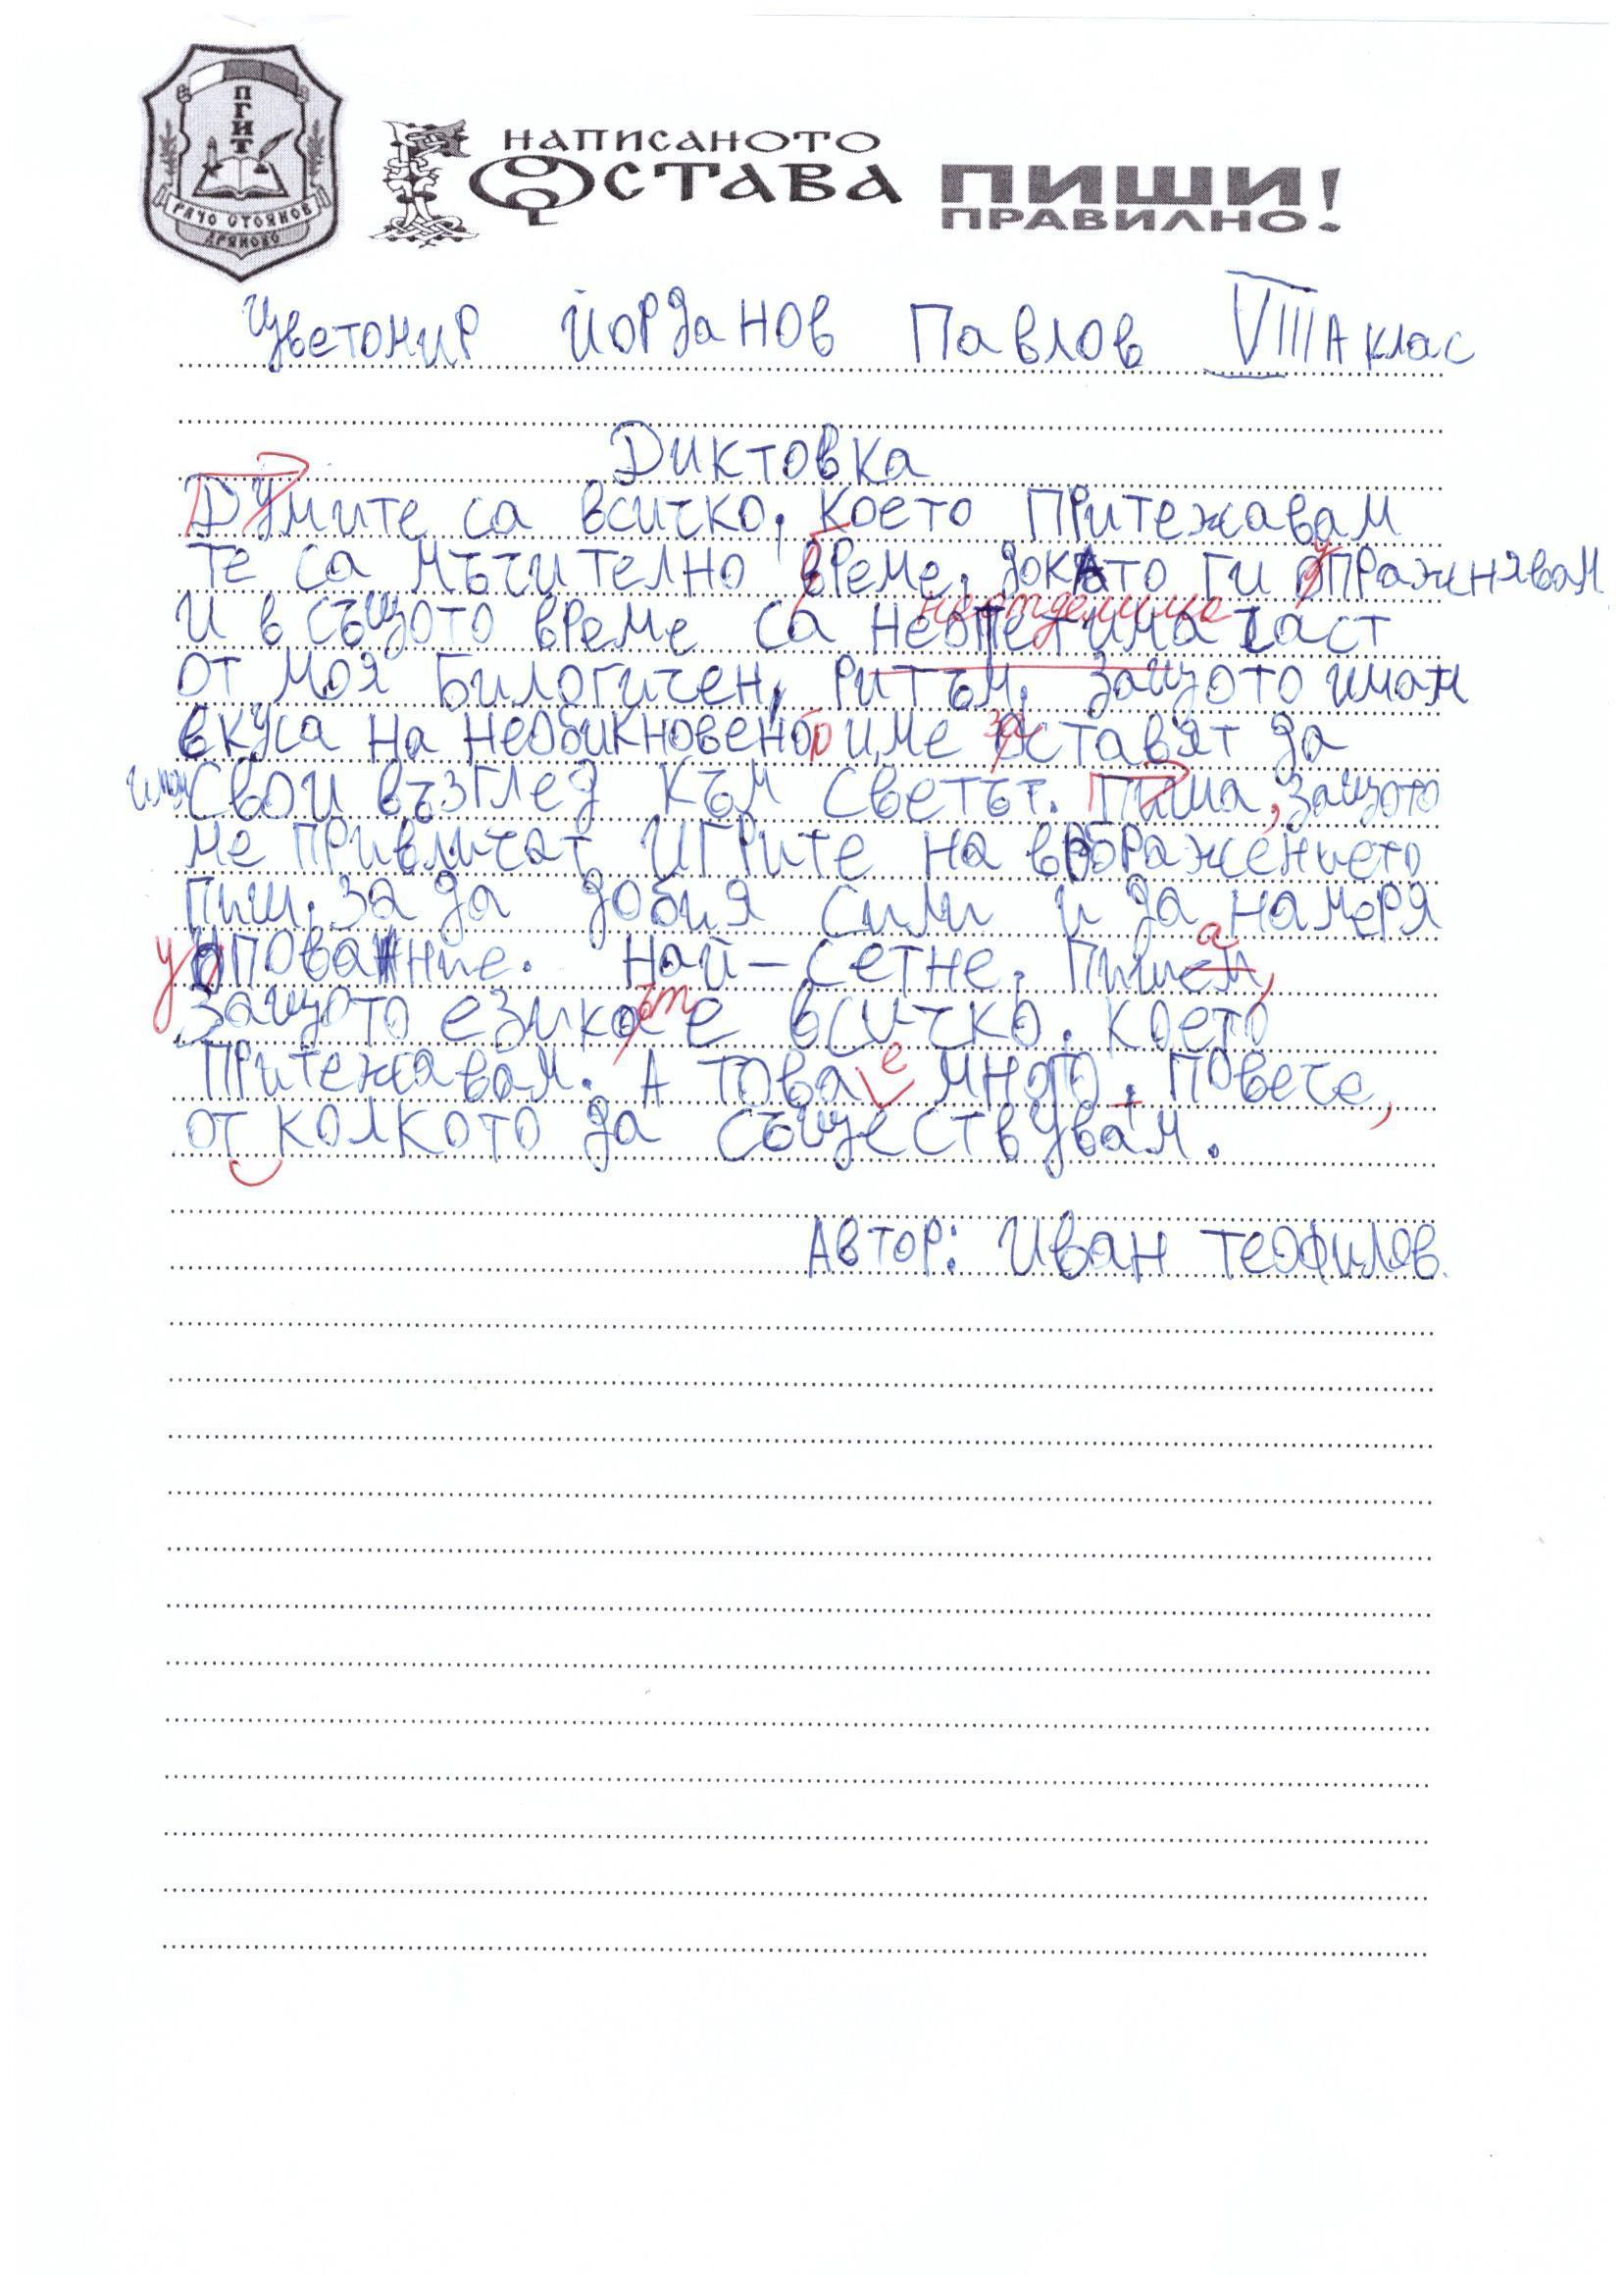 ПГИТ
РАЧО СТОЯНОВ
ДРЯНОВО
НАПИСАНОТО
ОСТАВА
ПИШИ
ПРАВИЛНО!
Цветомир Йорданов Павлов VIII А клас
Диктовка
Думите са всичко, което притежавам
те са мъчително време, докато ги упражнявам
неотделима
и в същото време са част
от моя Билогичен, ритъм, защото имат
вкуса на необикновено име заставят да
имам свои възглед към светът. Пиша, защото
ме привличат игрите на въображението
Пиш, за да добия сили и да намеря
упование. Най-сетне, Пишем а,
Защото езикът е всичко, което
Притежавам. А това е много, повече,
от колкото да съществувам.
Автор: Иван Теофилов.